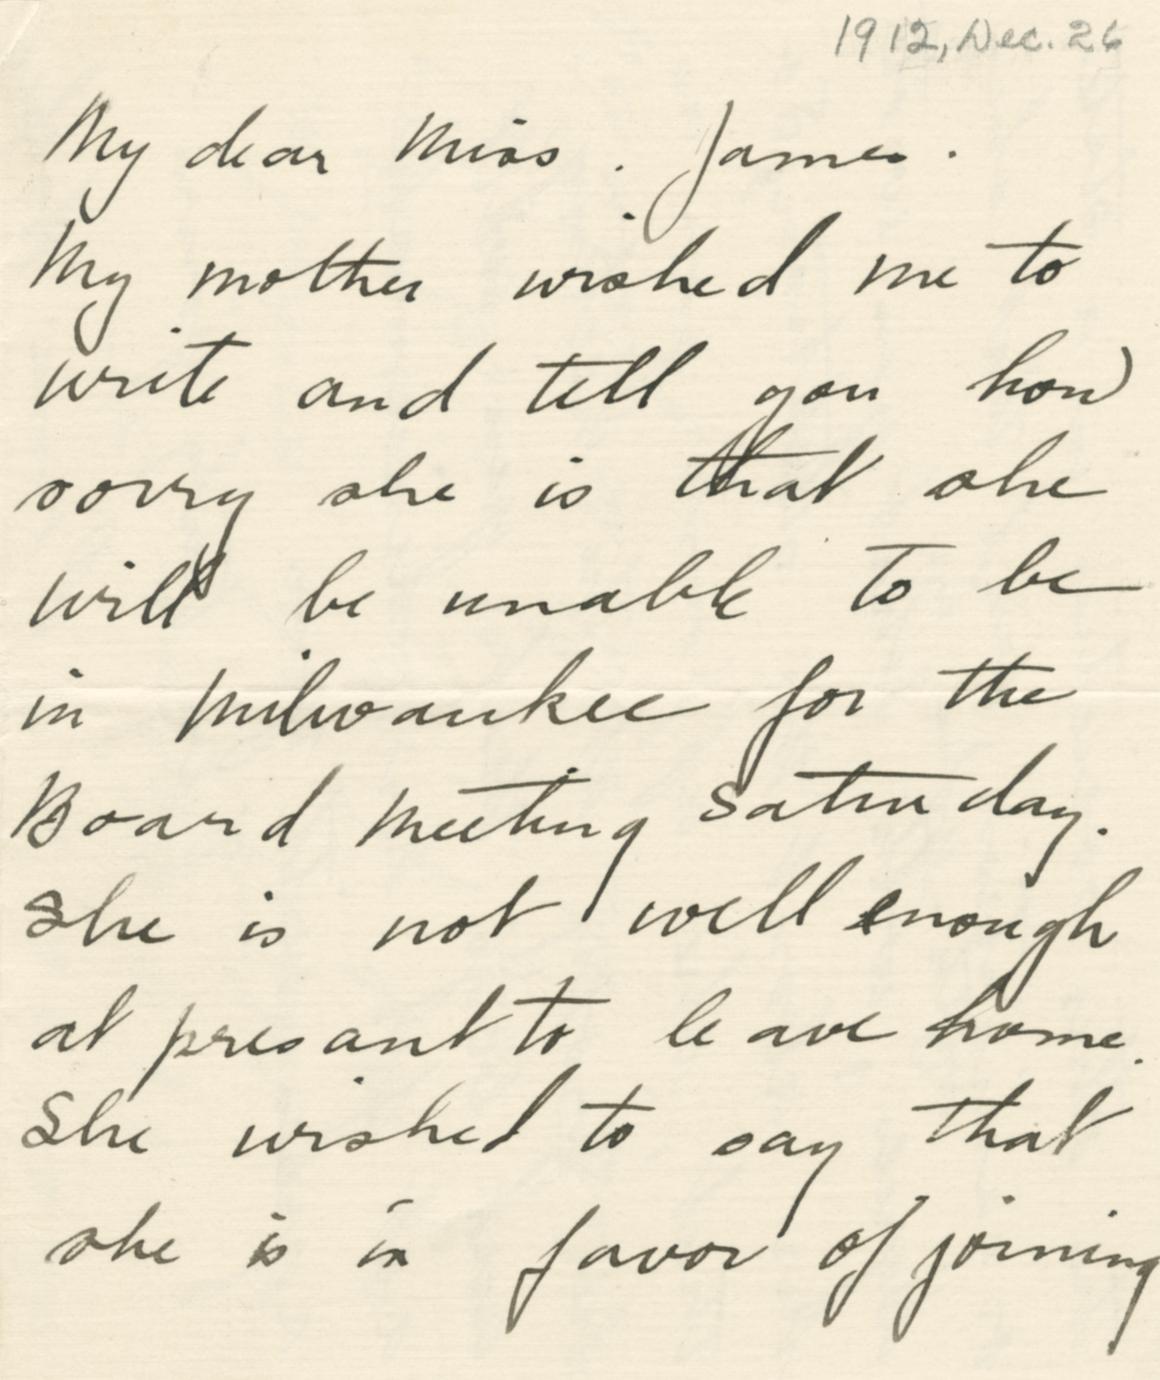 1912, Dec. 26
My dear Miss. James.
My mother wished me to
write and tell you how
sorry she is that she
will be unable to be
in Milwaukee for the
Board Meeting Saturday.
She is not well enough
at presant to leave home.
She wished to say that
she is in favor of joining